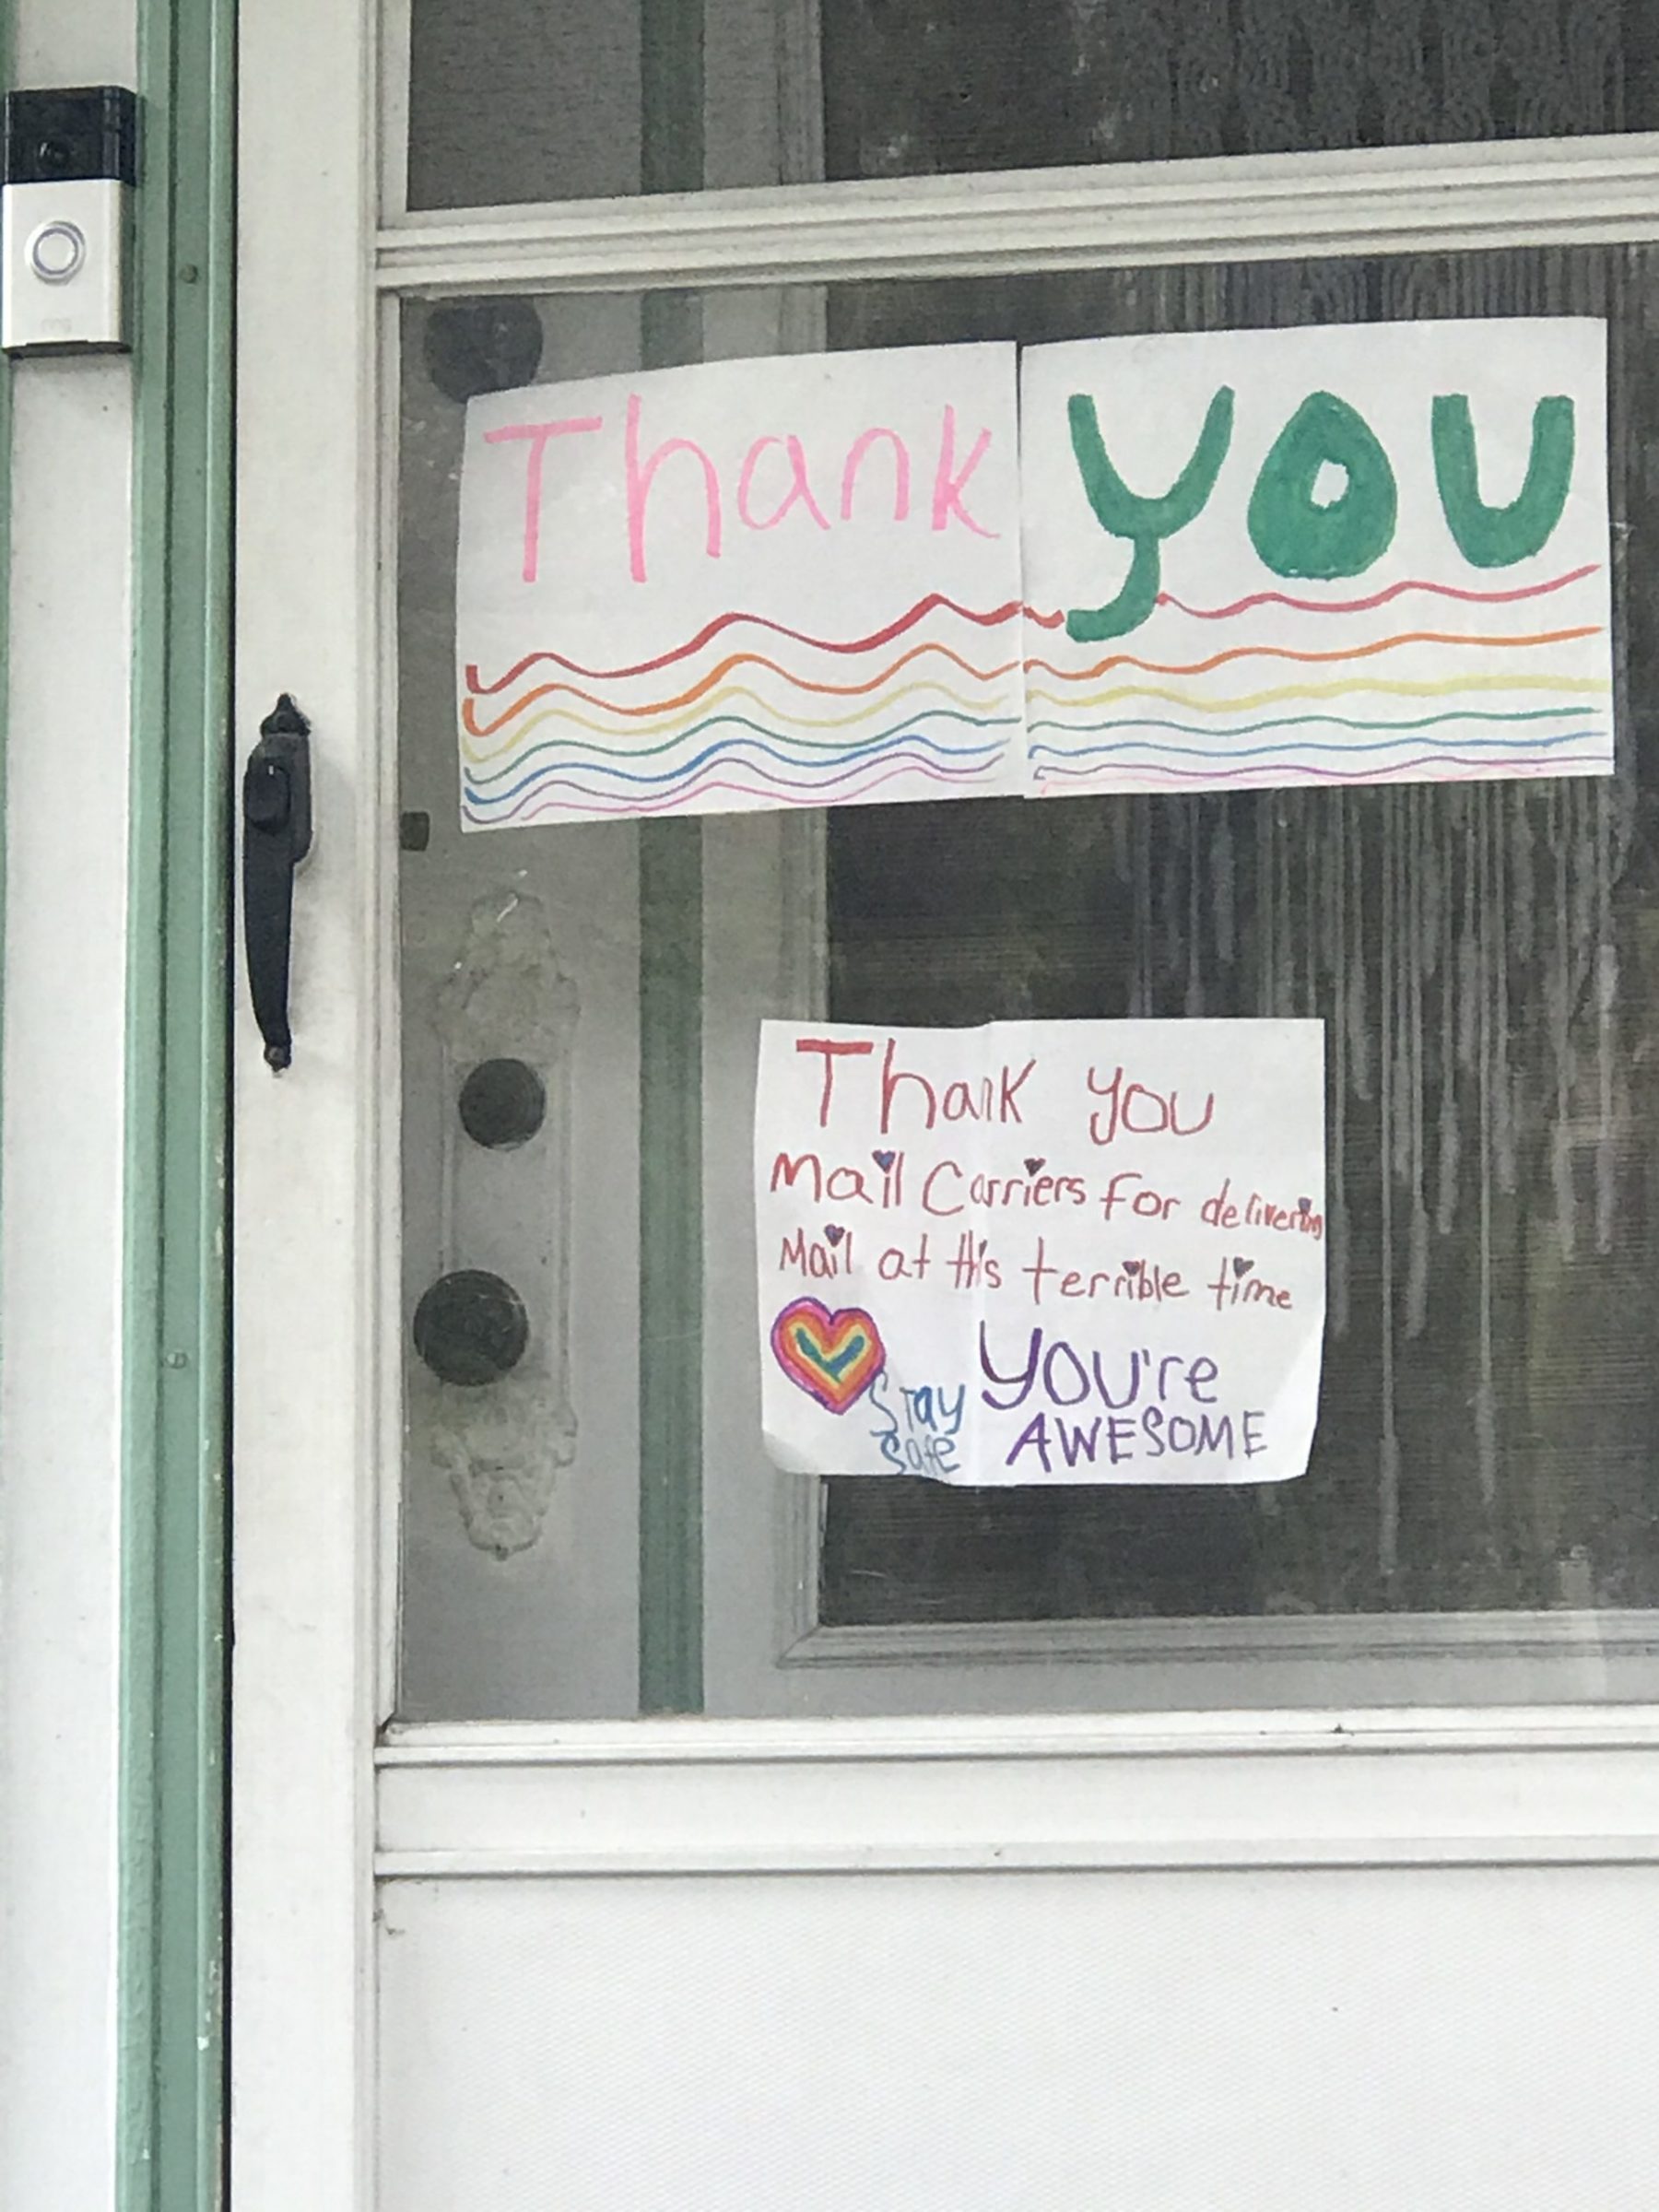 ring
Thank you
Thank you
Mail Carriers for delivering
Mail at this terrible time
Stay
safe
You're
AWESOME